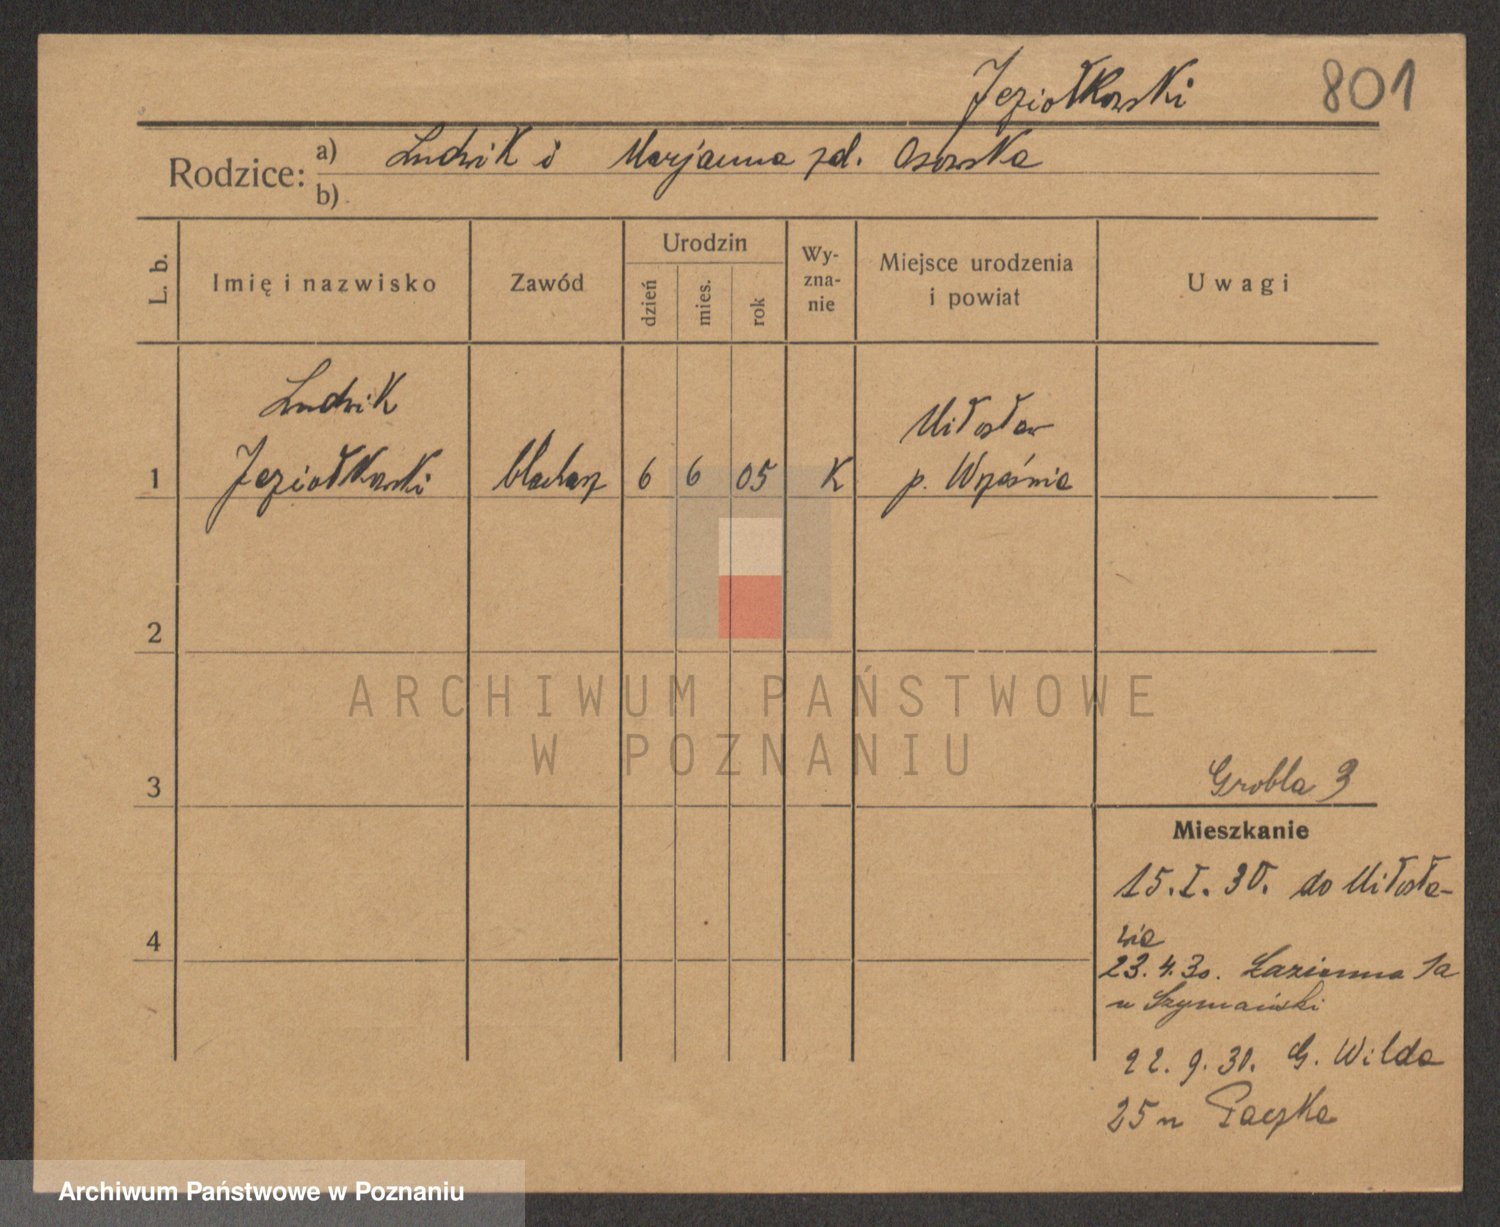 Jeziołkowski 801
Rodzice: a) Ludwik i Marjanna zd. Osowska
b)
L. b. Imię i nazwisko Zawód Urodzin dzień mies. rok Wy-zna-nie Miejsce urodzenia i powiat Uwagi
Ludwik Miłosław
1 Jeziołkowski blacharz 6 6 05 K p. Września
2
ARCHIWUM PAŃSTWOWE
W POZNANIU
3 Grobla 3
Mieszkanie
15.I.30. do Miłosła-
4 wia
23.4.30. Łazienna 1a
u Szymański
22.9.30. G. Wilda
25 u Paczka
Archiwum Państwowe w Poznaniu